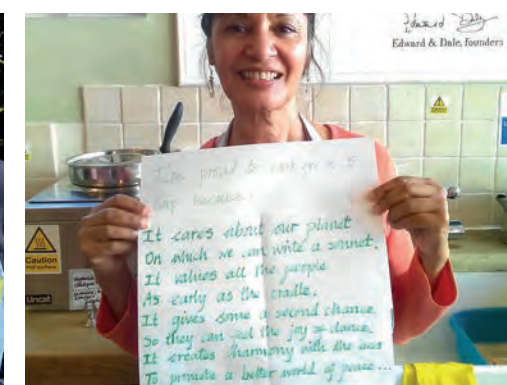 Edward Daly
Edward & Dale, founders
I'm proud to work
because:
It cares about our planet
On which we can write a sonnet.
It values all the people
As early as the cradle.
It gives some a second chance
So they can feel the joy & dance.
It creates harmony with the
To promote a better world of peace...
Caution
Hot surface
Lincat